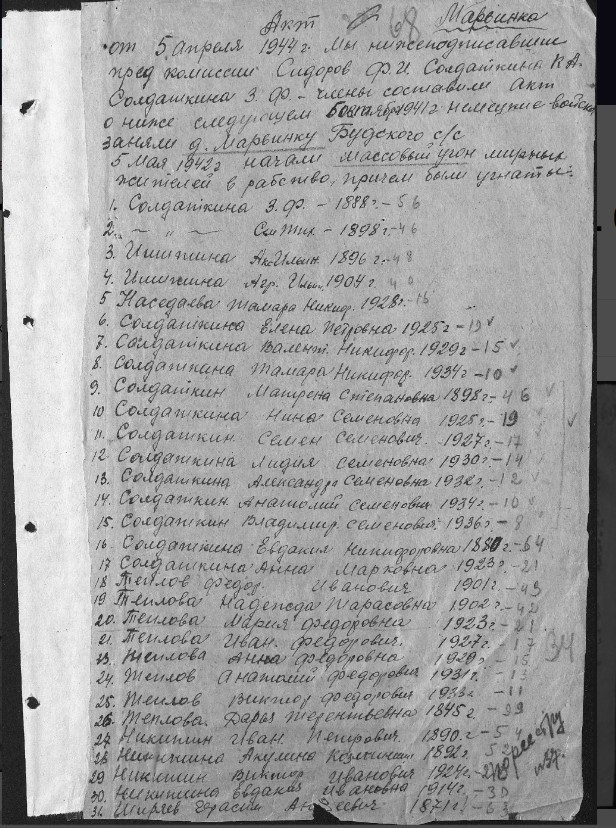 Акт 68 Марьинка
от 5 апреля 1944 г. Мы нижеподписавшие
пред комиссии Сидоров Ф.И. Солдаткина К А.
Солдаткина З. Ф. - члены составили Акт
о ниже следующем 1941 г немецкие войска
заняли д. Марьинку Будского с/с
5 Мая 1942 г начали массовый угон мирных
жителей в рабство, причем были угнаты:
1. Солдаткина З. Ф. - 1888 г. - 56
2. - " - - 1898 г - 46
3. Ильин. 1896 г - 48
4. Агр. 1904 г. 40
5 Наседаева Тамара Никифр. 1928 г. - 16
6. Солдаткина Елена Петровна 1925 г - 19 ✓
7. Солдаткина Валент. Никифор. 1929 г - 15 ✓
8. Солдаткина Тамара Никифор. 1934 г - 10 ✓
9. Солдаткин Матрена Степановна 1898 г - 46 ✓
10 Солдаткина Нина Семеновна 1925 г. - 19 ✓
11. Солдаткин. Семен Семенович. 1927 г. - 17
12 Солдаткина Лидия Семеновна 1930 г - 14
13. Солдаткина Александра Семеновна 1932 г. - 12
14. Солдаткин. Анатолий Семенович 1934 г. - 10
15. Солдаткин Владимир. Семенович. 1936 г - 8
16. Солдаткина Евдакия Никифоровна 1880 г. - 64
17 Солдаткина Анна Марковна 1923 г. - 21
18 Теплов Федор. Иванович 1901 г. - 43
19 Теплова Надежда Тарасовна 1902 г. - 42
20. Теплова Мария Федоровна 1923 г. - 21
21. Теплова Иван. Федорович. 1927 г. - 17
23. Теплова Анна Федоровна 1929 г. - 15 34
24. Теплов Анатолий Федорович 1931 г. - 13
25. Теплов Виктор Федорович 1933 г. - 11
26. Теплова. Дарья Терентьевна 1845 г - 99
27 Никитин Иван Петрович 1890 г. - 54
28 Никитина Акулина 1892 г. 52
29 Никитин Виктор Иванович 1924 г. - 20
30. Никитина Евдакия Ивановна 1914 г. - 30
31. Ширяев Герасим 1871 г
по реестру
№ 37.